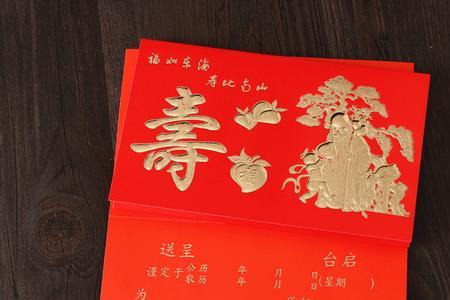 福如东海
寿比南山
壽
送呈 台启
谨定于公历 年 月 日
农历 年 月 日(星期 )
为